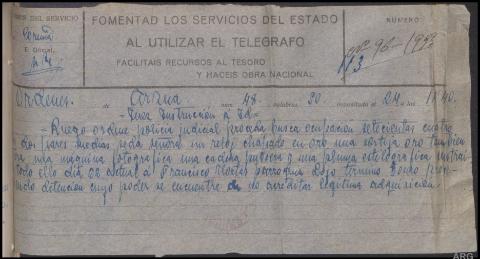 DEL SERVICIO
Coruña
E. Oficial.
FOMENTAD LOS SERVICIOS DEL ESTADO
AL UTILIZAR EL TELEGRAFO
FACILITAIS RECURSOS AL TESORO
Y HACEIS OBRA NACIONAL
NÚMERO
Ordenes. de Arzua num. 48 palabras 90 depositado el 24 a las 11'40.
Juez Instrucción a Id-
-Ruego ordene policia judicial proceda busca ocupacion setecientas cuatro
dos pares medias seda señora un reloj chapado en oro una sortija oro tambien
una maquina fotografica una cadena pulsera y una pluma estilografica sustrai
todo ello dia 22 actual a Francisco parroquia termino Boimo
detencion cuyo poder se encuentre no acreditar legitima adquisicion.
ARG